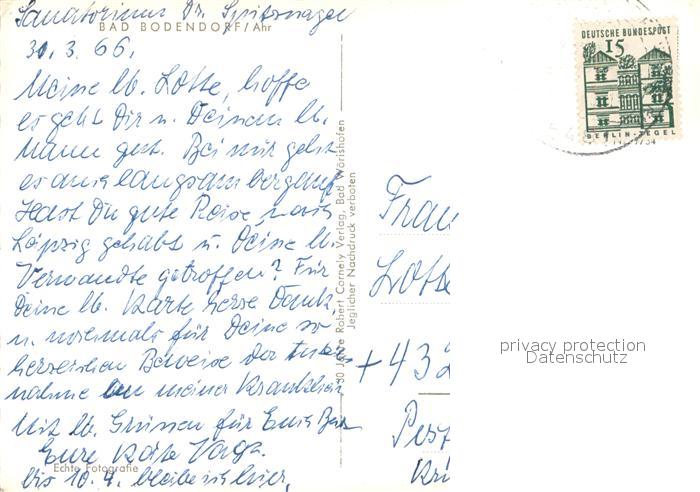 Sanatorium Dr. Spitznagel
BAD BODENDORF/Ahr
30.3.66.
Meine lb. Lotte, hoffe
es geht Dir u. Deinem lb.
Mann gut. Bei mir geht
es auch langsam bergauf
Hast Du gute Reise nach
Leipzig gehabt u. Deine lb.
Verwandte getroffen? Für
Deine lb. Karte herzl Dank,
u. nochmals für Deine so
herzlichen Beweise der Anteil-
nahme an meiner Krankheit
Mit lb. Grüssen für Euch Beide
Eure Käte
Echte Fotografie
bis 10.4. bleibe ich hier,
30 Jahre Robert Cornely Verlag, Bad Wörishofen
Jeglicher Nachdruck verboten
DEUTSCHE BUNDESPOST
15
BERLIN-TEGEL
Frau
Lotte
+ 432
Post
privacy protection
Datenschutz